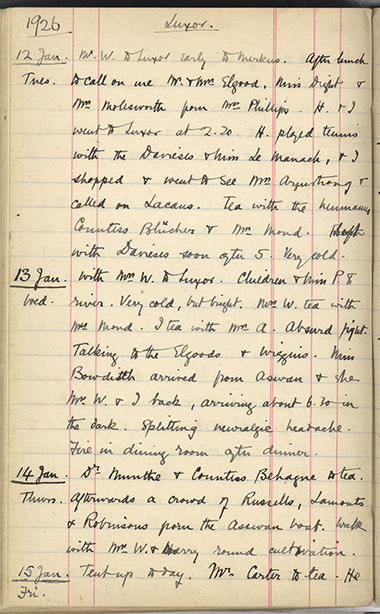 1926 Luxor.
12 Jan. Mr. W. to Luxor early to Merkus. After lunch
Tues. to call on me Mr & Mrs Elgood, Miss Dight &
Mrs Molesworth from Mrs Phillips. H. & I
went to Luxor at 2.20. H. played tennis
with the Davieses & Miss Le Manach, & I
shopped & went to see Mrs Armstrong &
called on Lacaus. Tea with the
Countess Blücher & Mr. Mond. Left
with Davieses soon after 5. Very cold.
13 Jan. with Mrs W. to Luxor. Children & Miss P. to
Wed. river. Very cold, but bright. Mrs W. tea with
Mrs Mond. I tea with Mrs A. Absurd fight.
Talking to the Elgoods & Wiggins. Miss
arrived from Aswan & she
Mrs W. & I back, arriving about 6.20 in
the dark. Splitting neuralgic headache.
Fire in dining room after dinner.
14 Jan. Dr Munthe & Countess Behagne to tea.
Thurs. Afterwards a crowd of Russells, Lamonts
& Robinsons from the Asswan boat. Walk
with Mrs W. & Harry round cultivation.
15 Jan. Tent up to day. Mr. Carter to tea. He
Fri.